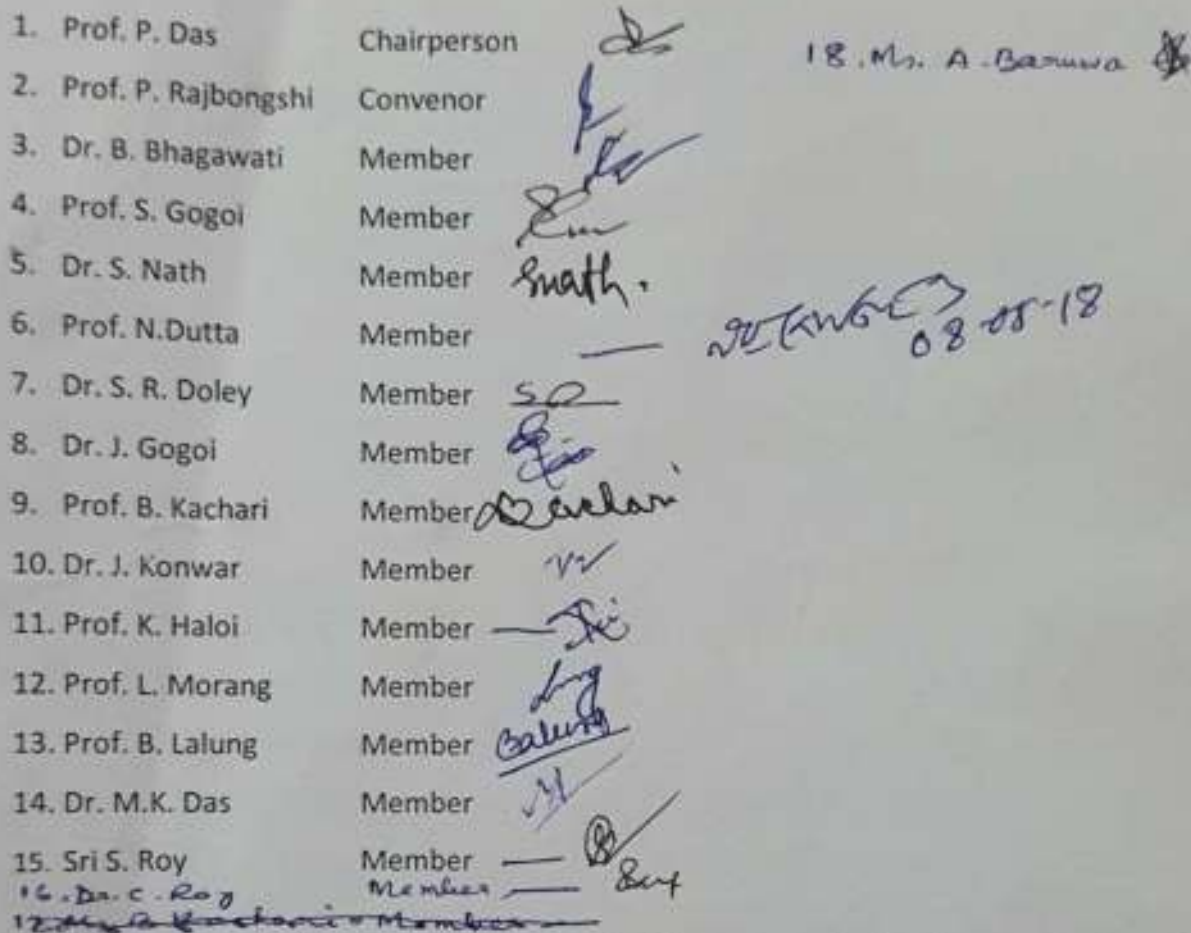 1. Prof. P. Das Chairperson
18. Ms. A. Baruwa
2. Prof. P. Rajbongshi Convenor
3. Dr. B. Bhagawati Member
4. Prof. S. Gogoi Member
5. Dr. S. Nath Member Snath.
6. Prof. N.Dutta Member — 08-05-18
7. Dr. S. R. Doley Member SD
8. Dr. J. Gogoi Member
9. Prof. B. Kachari Member BKachari
10. Dr. J. Konwar Member
11. Prof. K. Haloi Member —
12. Prof. L. Morang Member
13. Prof. B. Lalung Member Balung
14. Dr. M.K. Das Member
15. Sri S. Roy Member —
16. Dr. C. Roy Member —
17. B Kachari - Member —